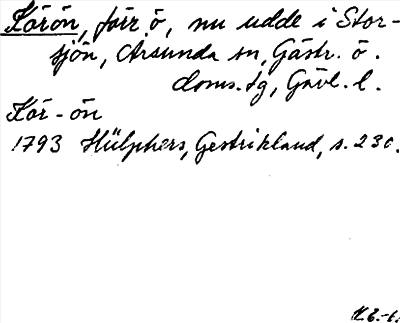 Körön, förr ö, nu udde i Stor-
sjön, Årsunda sn, Gästr. ö.
doms.tg, Gävl. l.
Kör-ön
1793 Hülphers, Gestrikland, s. 230.